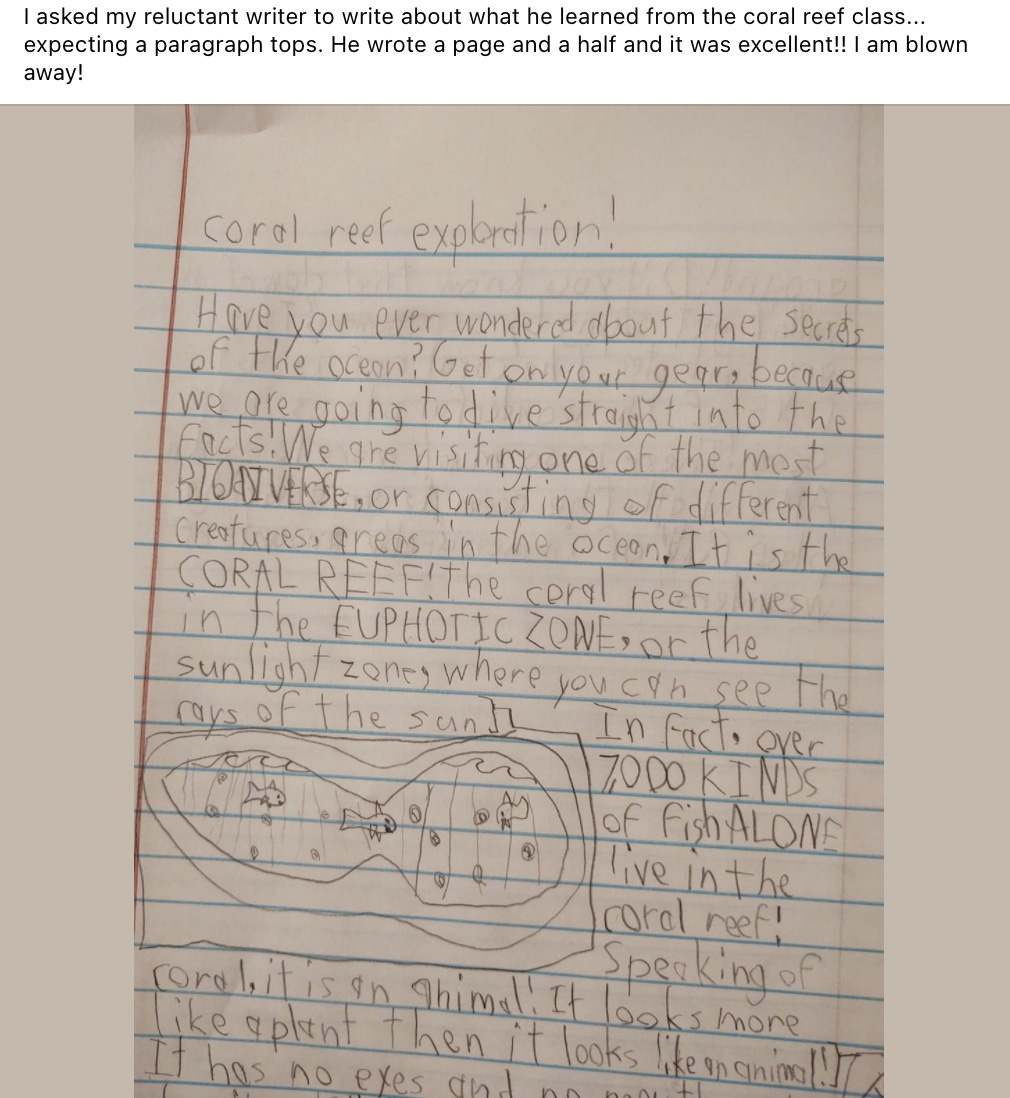 I asked my reluctant writer to write about what he learned from the coral reef class...
expecting a paragraph tops. He wrote a page and a half and it was excellent!! I am blown
away!
coral reef exploration!
Have you ever wondered about the secrets
of the ocean? Get on your gear, because
we are going to dive straight into the
facts! We are visiting one of the most
BIODIVERSE, or consisting of different
creatures, areas in the ocean. It is the
CORAL REEF! The coral reef lives
in the EUPHOTIC ZONE, or the
sunlight zone, where you can see the
rays of the sun!
In fact, over
7000 KINDS
of fish ALONE
live in the
coral reef!
Speaking of
coral, it is an animal! It looks more
like a plant then it looks like an animal!
It has no eyes and no